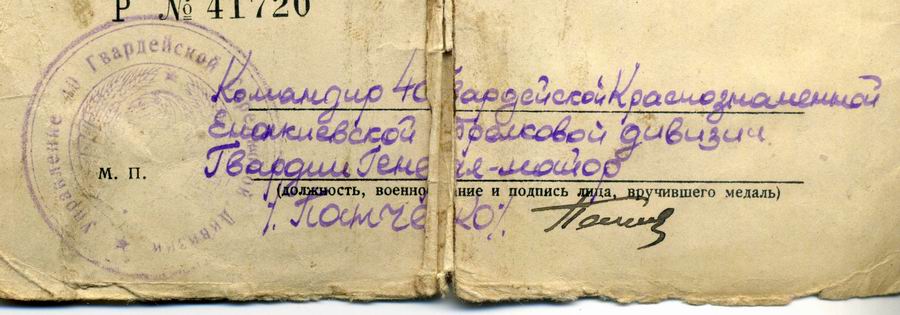 Р № 41720
Управление 40 Гвардейской
Дивизии
Командир 40 Гвардейской Краснознаменной
Енакиевской Стрелковой дивизии
Гвардии Генерал-майор
М. П.
(должность, военное звание и подпись лица, вручившего медаль)
/. Панченко/.